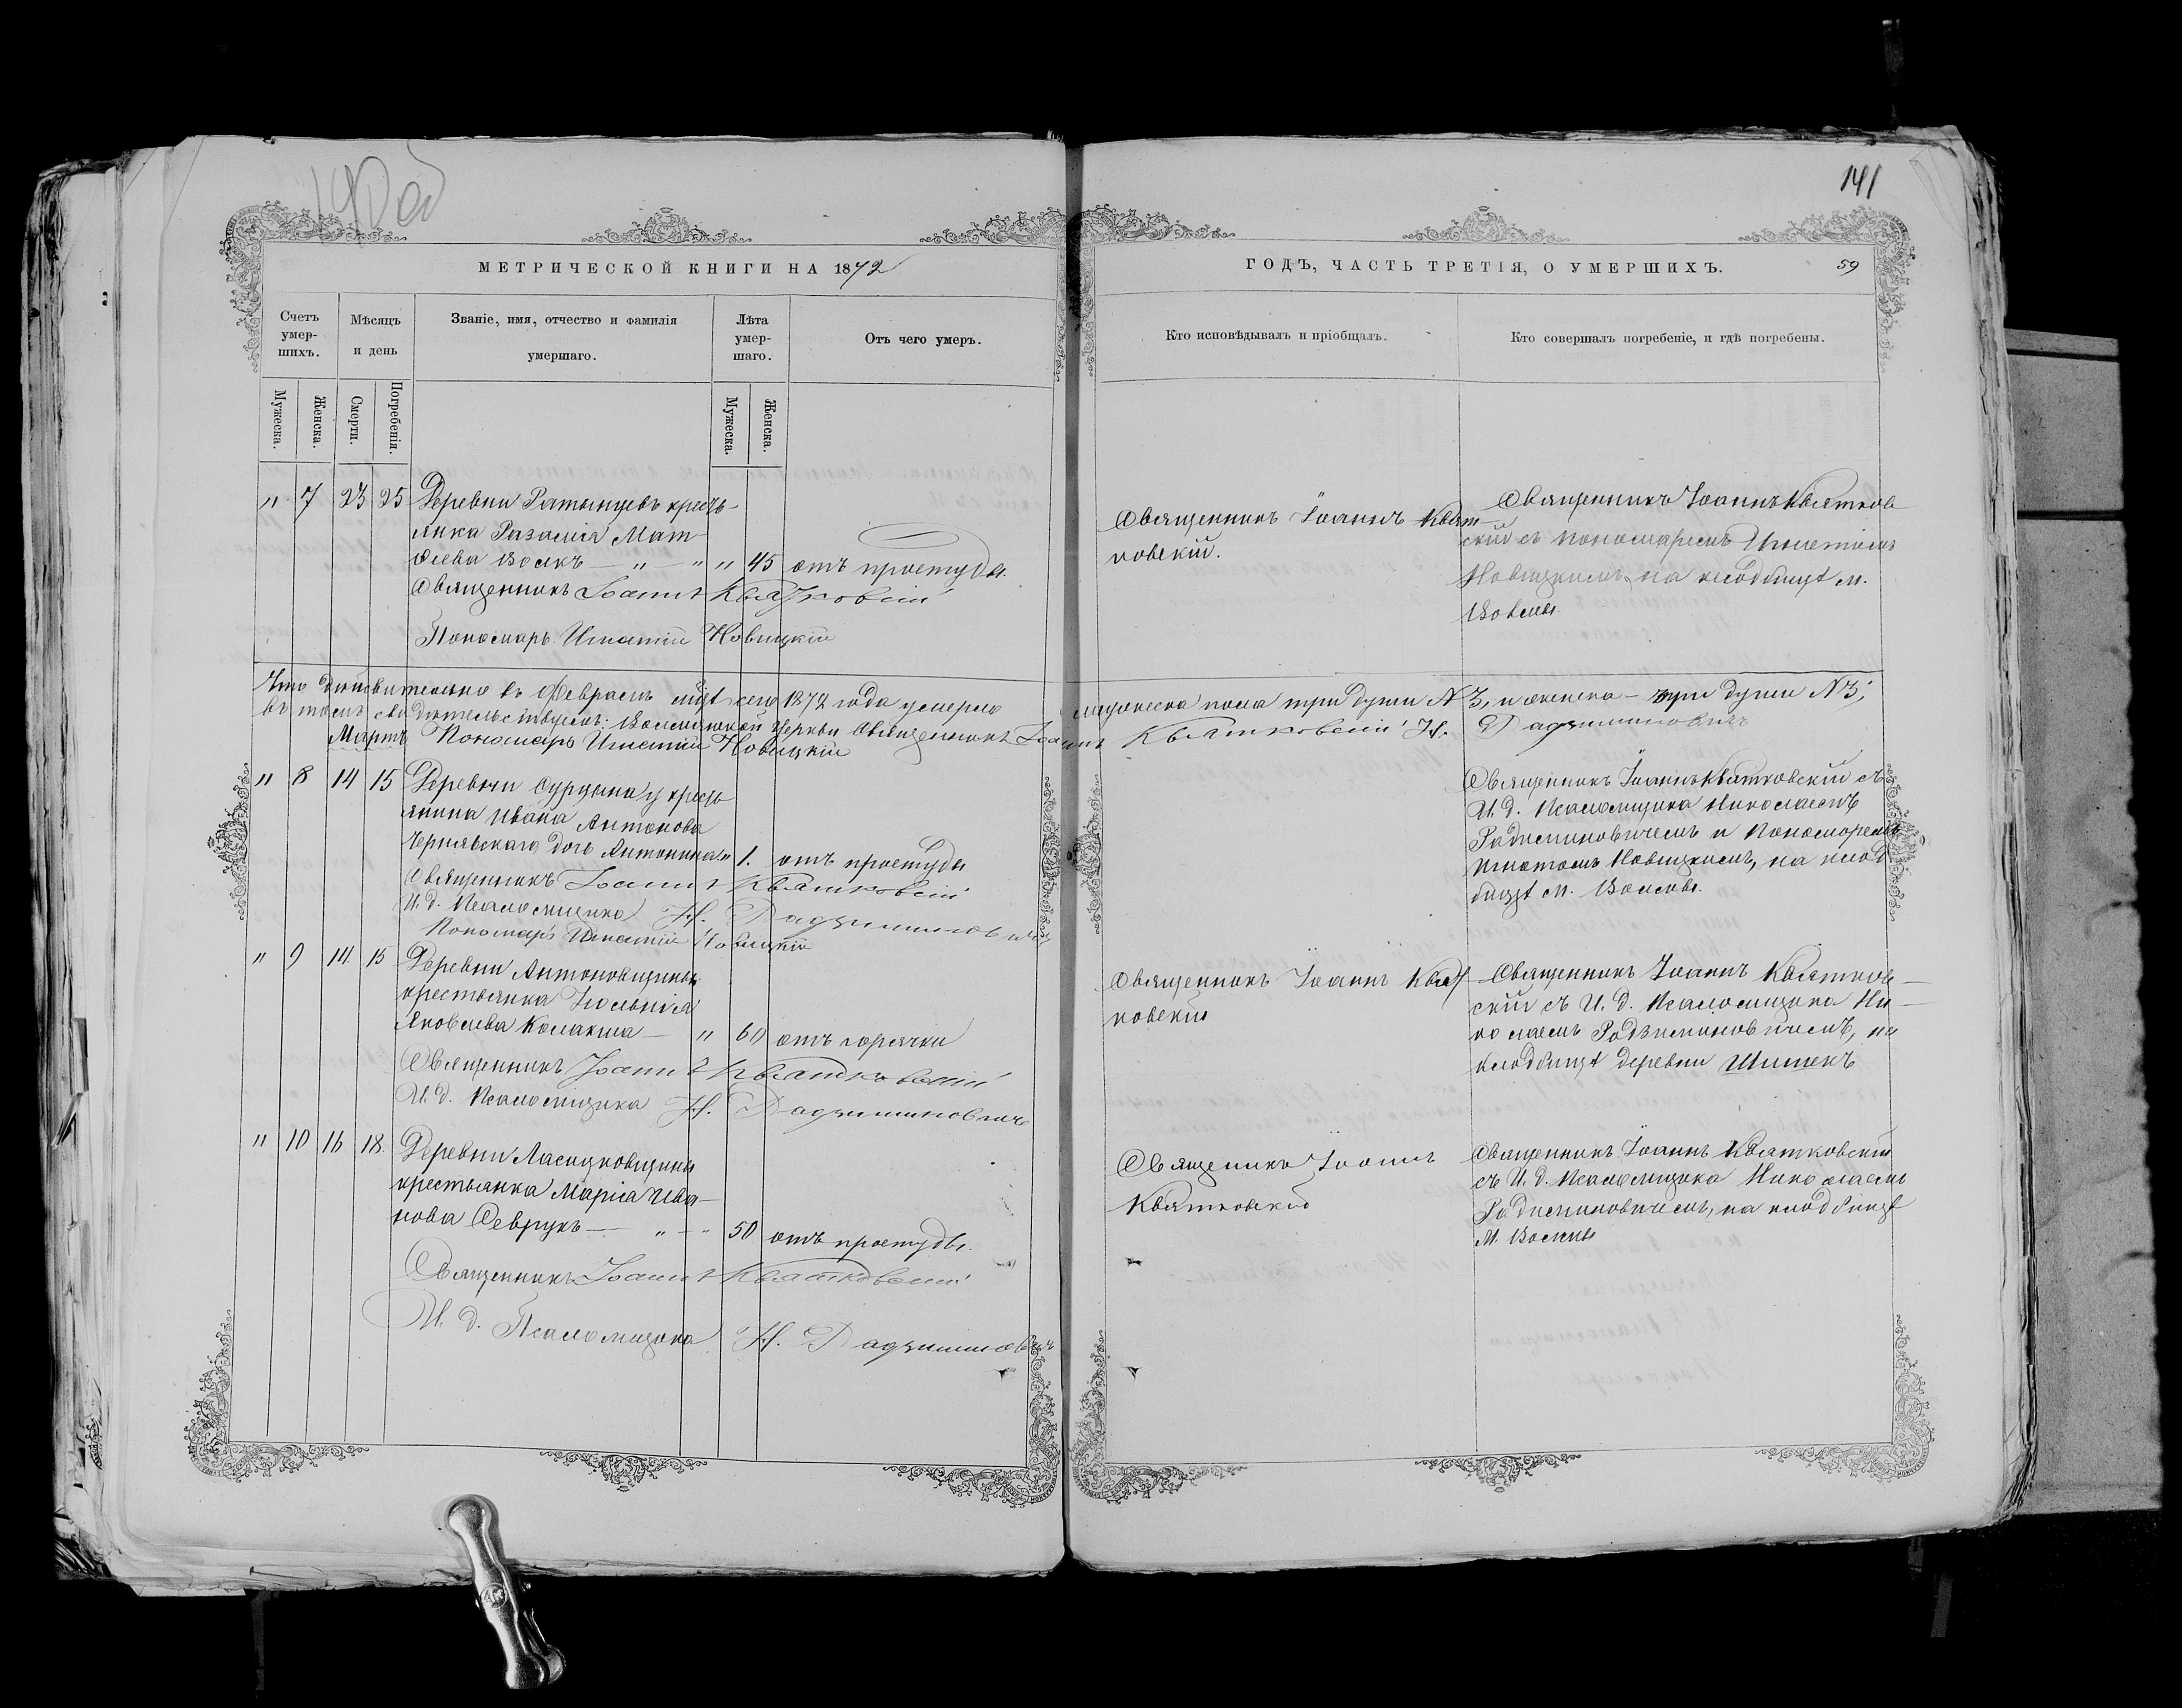 141
МЕТРИЧЕСКОЙ КНИГИ НА 1872
ГОДЪ, ЧАСТЬ ТРЕТІЯ, О УМЕРШИХЪ.
59
Счетъ умер-шихъ.
Мѣсяцъ и день
Званіе, имя, отчество и фамилія умершаго.
Лѣта умер-шаго.
Отъ чего умеръ.
Кто исповѣдывалъ и пріобщалъ.
Кто совершалъ погребеніе, и гдѣ погребены.
Мужеска.
Женска.
Смерти.
Погребенія.
Мужеска.
Женска.
" 7 23 25 Деревни Ратынцевъ кресть-
янка Розалія Мат-
ѳеева Волкъ — " — " " 45 отъ простуды.
Священникъ Іоаннъ Квятковскій
Пономарь Игнатій Новицкій
Священникъ Іоаннъ Квят-
ковскій.
Священникъ Іоаннъ Квятков-
скій съ пономаремъ Игнатіемъ
Новицкимъ, на кладбищѣ м.
Волмы
Что дѣйствительно въ Февралѣ мцѣ сего 1872 года умерло мужеска пола три души № 3, и женска — три души № 3;
въ томъ свидѣтельствуемъ: Волмянской Церкви Священникъ Іоаннъ Квятковскій Н. Радзиминовичъ
Пономарь Игнатій Новицкій
Мартъ
" 8 14 15 Деревни Сурдына у кресть-
янина Ивана Антонова
Чернявскаго дочь Антонина " 1. отъ простуды
Священникъ Іоаннъ Квятковскій
И. д. Псаломщика Н. Радзиминовичъ
Пономарь Игнатій Новицкій
Священникъ Іоаннъ Квятковскій съ
И. д. Псаломщика Николаемъ
Радзиминовичемъ и Пономаремъ
Игнатіемъ Новицкимъ, на клад-
бищѣ м. Волмы.
" 9 14 15 Деревни Антоновщины
крестьянка
Яковлева — " 60 отъ горячки
Священникъ Іоаннъ Квятковскій
И. д. Псаломщика Н. Радзиминовичъ
Священникъ Іоаннъ Квят-
ковскій
Священникъ Іоаннъ Квятков-
скій съ И. д. Псаломщика Ни-
колаемъ Радзиминовичемъ, на
кладбищѣ деревни Шипекъ
" 10 16 18. Деревни Ласицковщины
крестьянка Марія Ива-
нова Феврукъ — " — " 50 отъ простуды.
Священникъ Іоаннъ Квятковскій
И. д. Псаломщика Н. Радзиминовичъ
Священникъ Іоаннъ
Квятковскій
Священникъ Іоаннъ Квятковскій
съ И. д. Псаломщика Николаемъ
Радзиминовичемъ, на кладбищѣ
м. Волмы